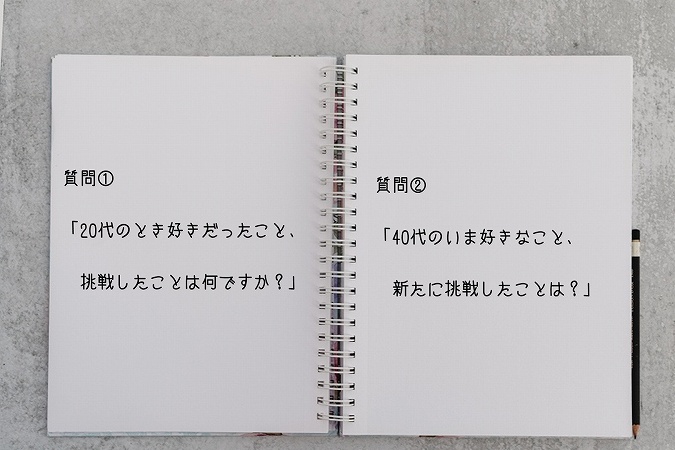 質問①
「20代のとき好きだったこと、
挑戦したことは何ですか？」
質問②
「40代のいま好きなこと、
新たに挑戦したことは？」